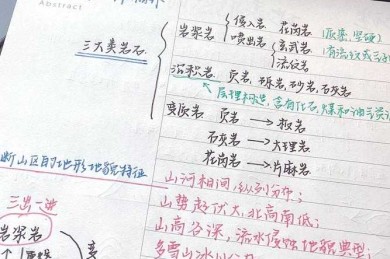 Abstract
侵入岩 花岗岩 (致密,坚硬)
岩浆岩
喷出岩 玄武岩 (有流纹或
流纹岩
三大类岩石
沉积岩 页岩 砾岩 砂岩 石灰岩
层理构造,含有化石,煤和油
变质岩 页岩 → 板岩
石灰岩 → 大理岩
花岗岩 → 片麻岩
断山区的地形地貌特征
山河相间,纵列分布;
山势起伏大,北高南低;
三出一进
山高谷深,流水侵蚀地貌典型;
岩浆岩
多雪山冰川